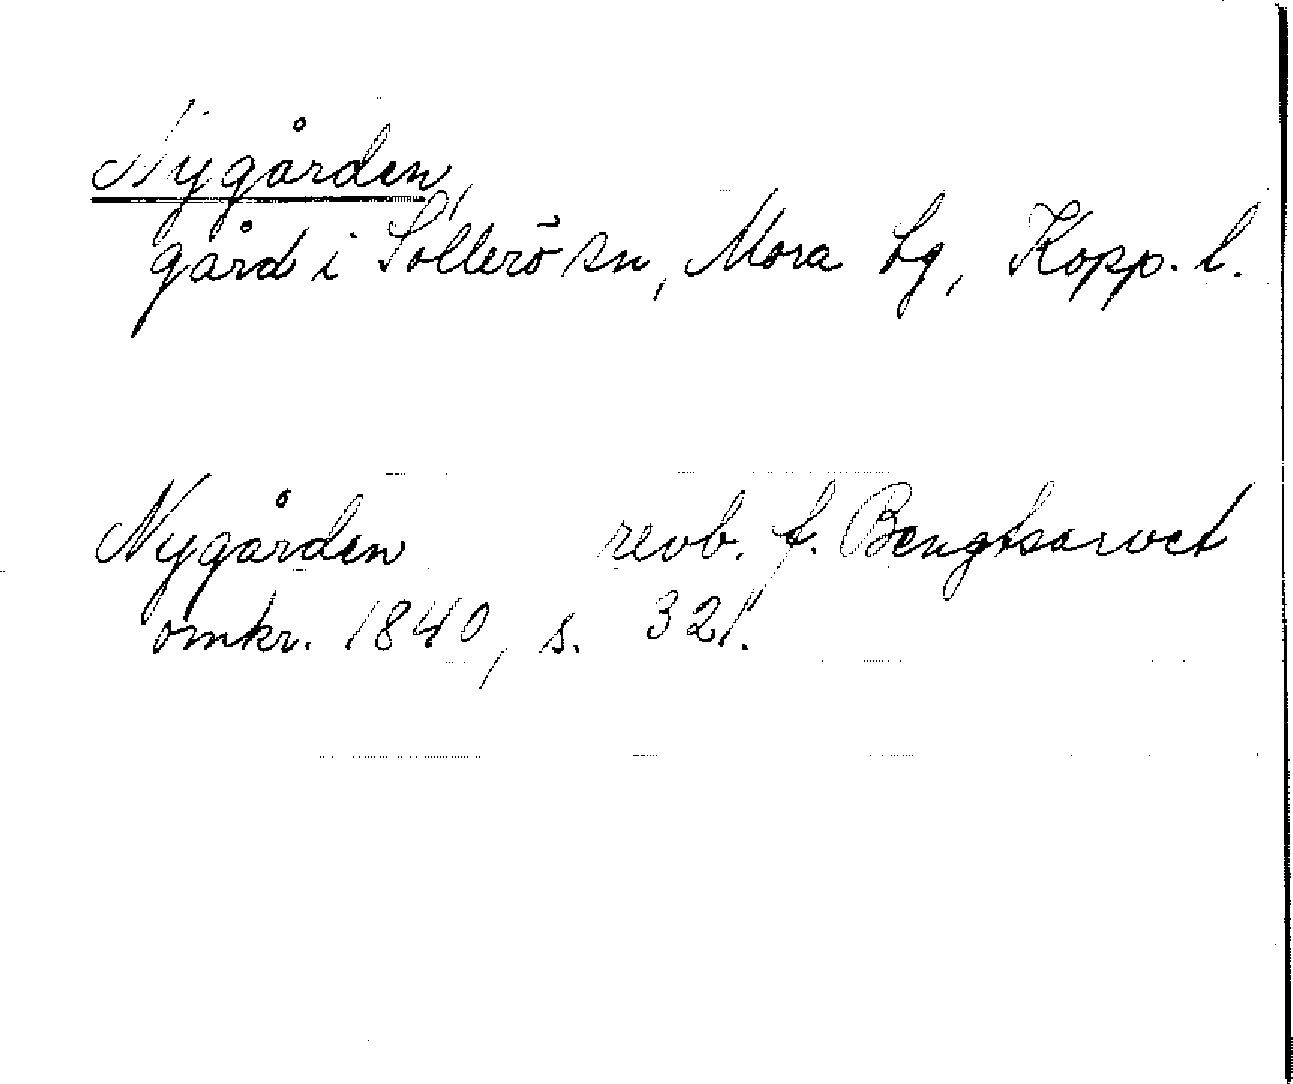 Nygården,
gård i Sollerö sn, Mora tg, Kopp. l.
Nygården revb. f. Bengtsarvet
omkr. 1840, s. 321.